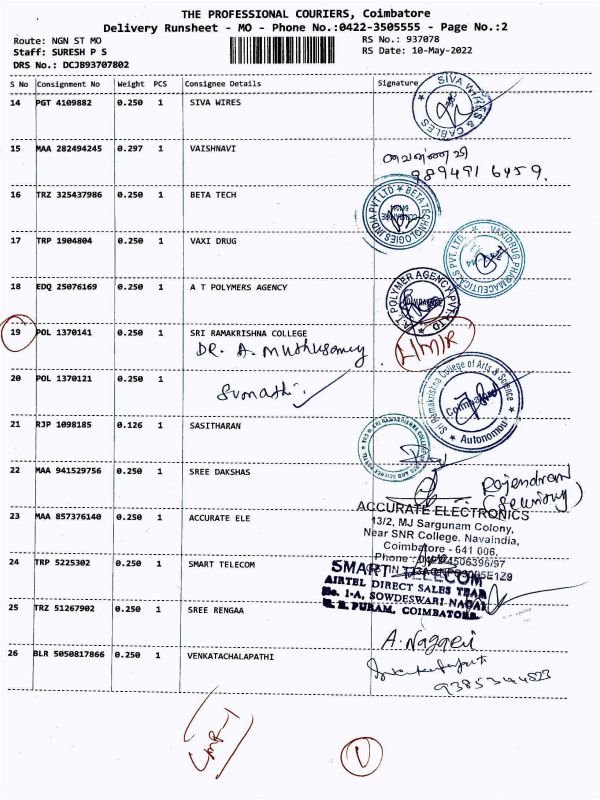 THE PROFESSIONAL COURIERS, Coimbatore
Delivery Runsheet - MO - Phone No.:0422-3505555 - Page No.:2
Route: NGN ST MO
RS No.: 937078
Staff: SURESH P S
RS Date: 10-May-2022
DRS No.: DCJB93707802
S No Consignment No Weight PCS Consignee Details Signature
14 PGT 4109882 0.250 1 SIVA WIRES
SIVA WIRES & CABLES
15 MAA 282494245 0.297 1 VAISHNAVI
வைஷ்ணவி
9894916459.
16 TRZ 325437986 0.250 1 BETA TECH
BETA TECHNOLOGIES INDIA PVT LTD
17 TRP 1904804 0.250 1 VAXI DRUG
VAXIDRUG PHARMACEUTICALS PVT. LTD.
18 EDQ 25076169 0.250 1 A T POLYMERS AGENCY
POLYMER AGENCY PVT. LTD
19 POL 1370141 0.250 1 SRI RAMAKRISHNA COLLEGE
DR. A. Muthusamy
20 POL 1370121 0.250 1
Sumathi.
Sri Ramakrishna College of Arts & Science
Coimbatore
Autonomous
21 RJP 1098185 0.126 1 SASITHARAN
22 MAA 941529756 0.250 1 SREE DAKSHAS
Rajendran
23 MAA 857376140 0.250 1 ACCURATE ELE
ACCURATE ELECTRONICS
13/2, MJ Sargunam Colony,
Near SNR College, Navaindia,
Coimbatore - 641 006.
24 TRP 5225302 0.250 1 SMART TELECOM
SMART TELECOM
AIRTEL DIRECT SALES TEAM
No. 1-A, SOWDESWARI NAGAR
PURAM, COIMBATORE.
25 TRZ 51267902 0.250 1 SREE RENGAA
A. Nageri
26 BLR 5050817866 0.250 1 VENKATACHALAPATHI